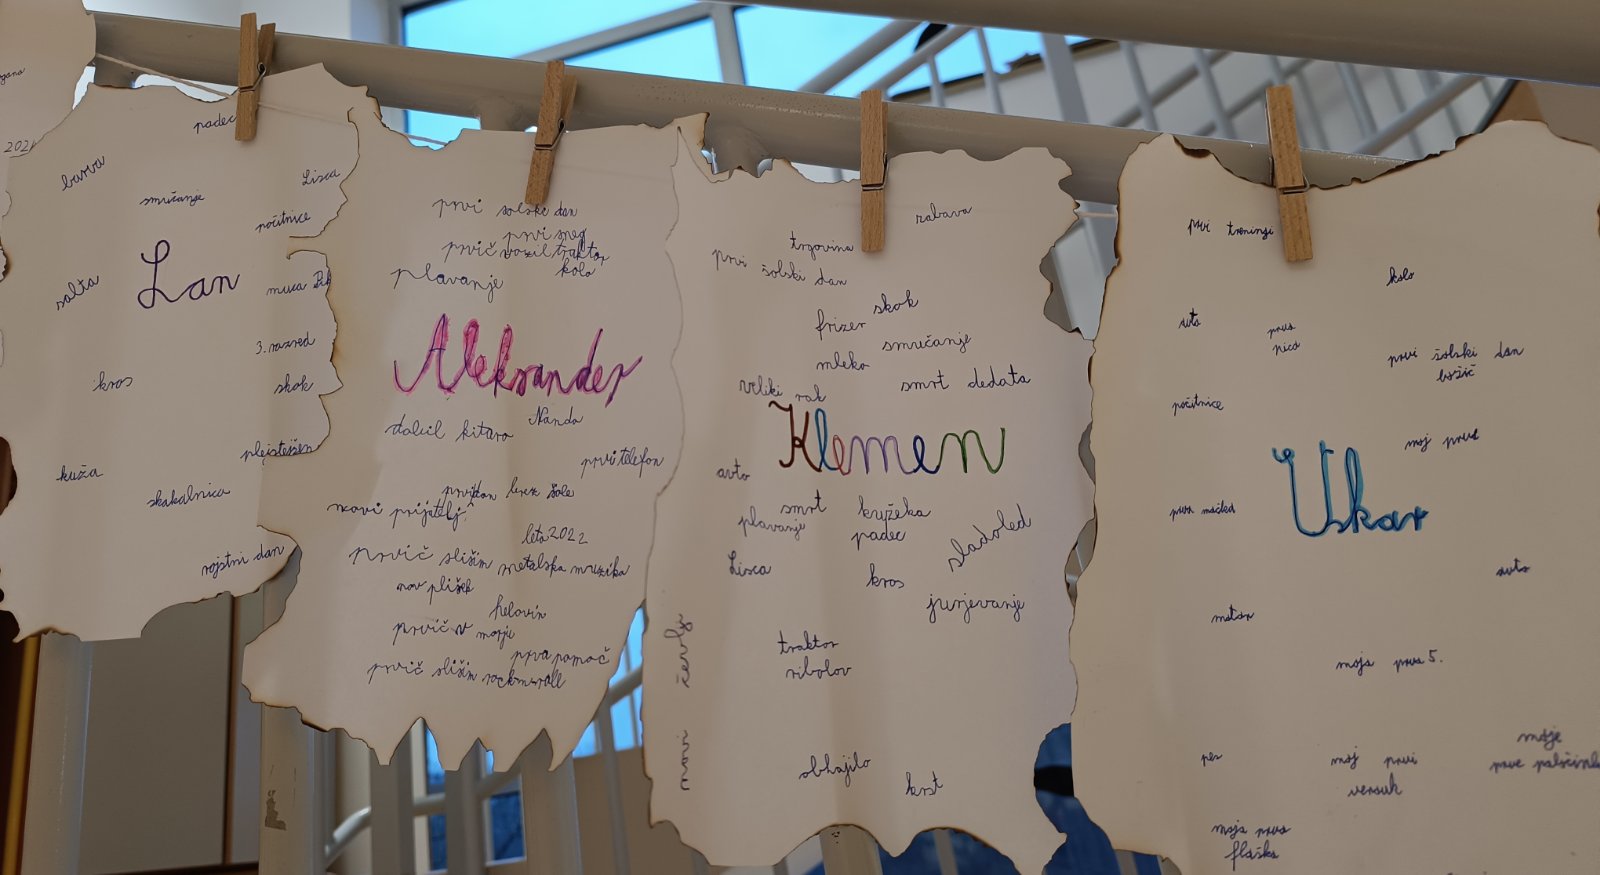 2021
padec
barva
Lisca
smučanje
počitnice
Lan
salta
muca
3. razred
kros
skok
plejstešen
kuža
skakalnica
rojstni dan
prvi šolski dan
prvi sneg
prvič vozil traktor
plavanje
kolo
Aleksander
dobil kitaro
Nanda
prvi telefon
prvi dan brez šole
novi prijatelj
leto 2022
prvič slišim metalska muzika
nov plišek
helovin
prvič v morju
prva pomoč
prvič slišim rocknroll
zabava
trgovina
prvi šolski dan
skok
frizer
smučanje
mleko
smrt dedata
veliki rok
Klemen
avto
smrt kužeka
plavanje
padec
sladoled
Lisca
kros
jurjevanje
traktor
ribolov
novi čevlji
obhajilo
krst
prvi treningi
kolo
avto
prva
prvi šolski dan
božič
počitnice
moj prvi
Uskar
prva maček
avto
motor
moja prva 5.
pes
moj prvi
moje
prve palačinke
moja prva
flaška